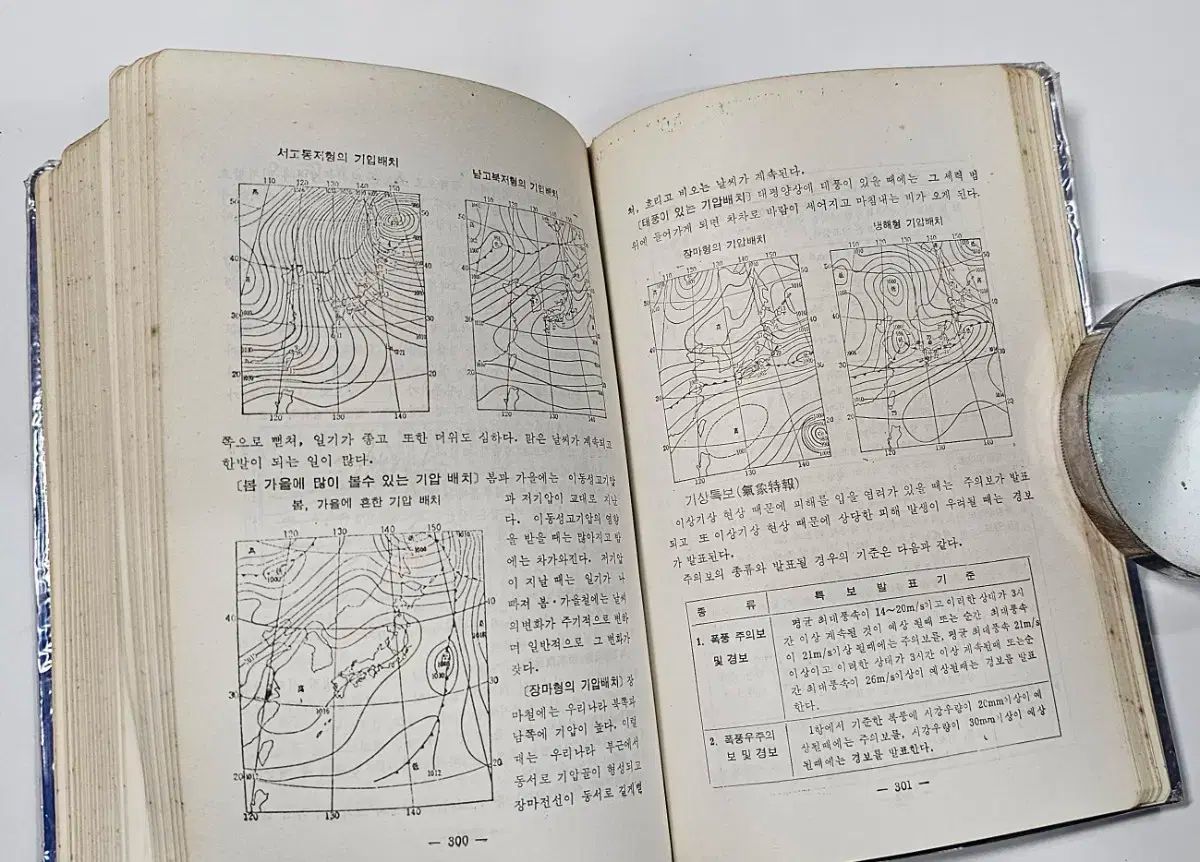 서고동저형의 기압배치
남고북저형의 기압배치
쪽으로 뻗쳐, 일기가 좋고 또한 더위도 심하다. 맑은 날씨가 계속되고
한발이 되는 일이 많다.
〔봄 가을에 많이 볼수 있는 기압 배치〕 봄과 가을에는 이동성고기압
봄, 가을에 흔한 기압 배치
과 저기압이 교대로 지난
다. 이동성고기압의 영향
을 받을 때는 맑아지고 밤
에는 차가와진다. 저기압
이 지날 때는 일기가 나
빠져 봄·가을철에는 날씨
의변화가 주기적으로 변하
며 일반적으로 그 변화가
잦다.
〔장마형의 기압배치〕 장
마철에는 우리나라 북쪽과
남쪽에 기압이 높다. 이럴
때는 우리나라 부근에서
동서로 기압골이 형성되고
장마전선이 동서로 길게뻗
— 300 —
쳐, 흐리고 비오는 날씨가 계속된다.
〔태풍이 있는 기압배치〕 태평양상에 태풍이 있을 때에는 그 세력 범
위에 들어가게 되면 차차로 바람이 세어지고 마침내는 비가 오게 된다.
장마형의 기압배치
냉해형 기압배치
기상특보(氣象特報)
이상기상 현상 때문에 피해를 입을 염려가 있을 때는 주의보가 발표
되고 또 이상기상 현상 때문에 상당한 피해 발생이 우려될 때는 경보
가 발표된다.
주의보의 종류와 발표될 경우의 기준은 다음과 같다.
종 류
특 보 발 표 기 준
1. 폭풍 주의보
및 경보
평균 최대풍속이 14~20m/s이고 이러한 상태가 3시
간 이상 계속될 것이 예상 될때 또는 순간 최대풍속
이 21m/s이상 될때에는 주의보를, 평균 최대풍속 21m/s
이상이고 이러한 상태가 3시간 이상 계속될때 또는순
간 최대풍속이 26m/s이상이 예상될때는 경보를 발표
한다.
2. 폭풍우주의
보 및 경보
1항에서 기준한 폭풍에 시강우량이 20mm이상이 예
상될때에는 주의보를, 시강우량이 30mm이상이 예상
될때에는 경보를 발표한다.
— 301 —